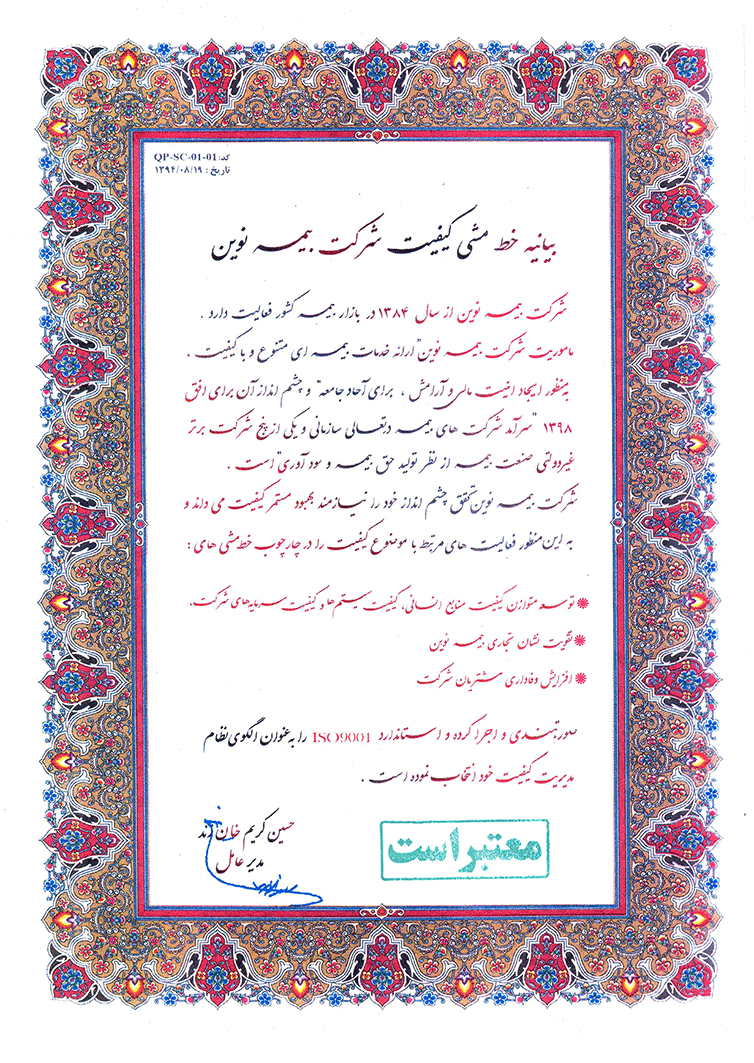 کد: QP-SC-01-01
تاریخ : ۱۳۹۴/۰۸/۱۹
بیانیه خط مشی کیفیت شرکت بیمه نوین
شرکت بیمه نوین از سال ۱۳۸۴ در بازار بیمه کشور فعالیت دارد .
ماموریت شرکت بیمه نوین "ارائه خدمات بیمه ای متنوع و با کیفیت ،
به‌منظور ایجاد امنیت مالی و آرامش ، برای آحاد جامعه" و چشم انداز آن برای افق
۱۳۹۸ "سرآمد شرکت های بیمه درتعالی سازمانی و یکی از پنج شرکت برتر
غیردولتی صنعت بیمه از نظر تولید حق بیمه و سود آوری" است .
شرکت بیمه نوین تحقق چشم انداز خود را نیازمند بهبود مستمر کیفیت می داند و
به این منظور فعالیت های مرتبط با موضوع کیفیت را در چارچوب خط‌مشی های :
❋ توسعه متوازن کیفیت منابع انسانی، کیفیت سیستم‌ها و کیفیت سرمایه‌های شرکت،
❋ تقویت نشان تجاری بیمه نوین
❋ افزایش وفاداری مشتریان شرکت
صورتبندی و اجرا کرده و استاندارد ISO9001 را به‌عنوان الگوی نظام
مدیریت کیفیت خود انتخاب نموده است .
حسین کریم خان زند
مدیر عامل
معتبر است